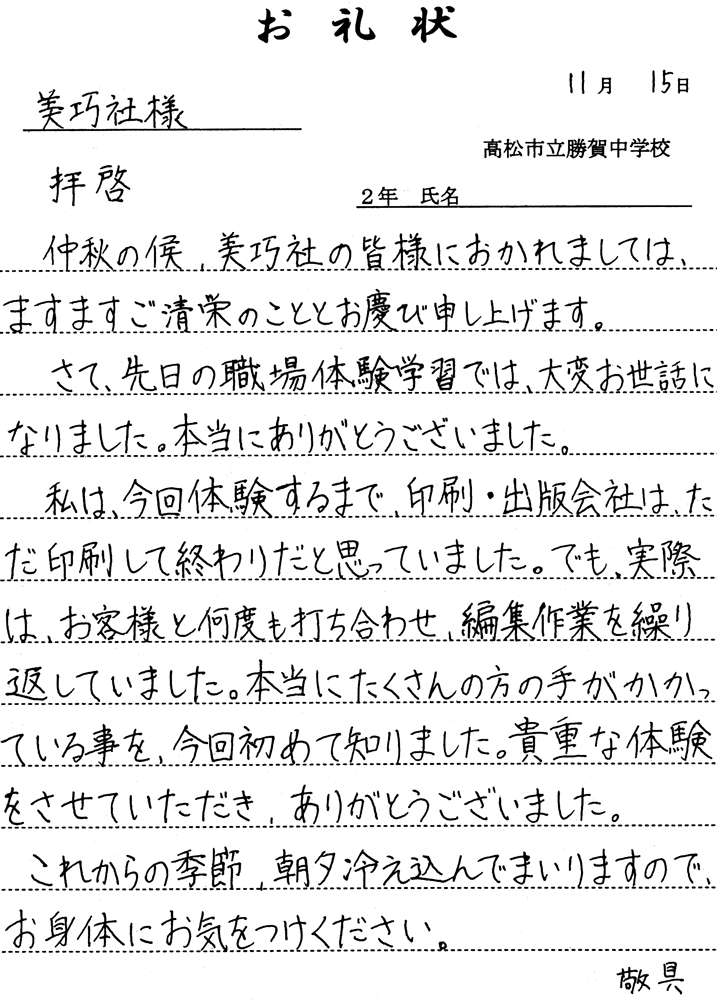 お礼状
11月 15日
美巧社様
高松市立勝賀中学校
拝啓
2年 氏名
仲秋の候、美巧社の皆様におかれましては、
ますますご清栄のこととお慶び申し上げます。
さて、先日の職場体験学習では、大変お世話に
なりました。本当にありがとうございました。
私は、今回体験するまで、印刷・出版会社は、た
だ印刷して終わりだと思っていました。でも、実際
は、お客様と何度も打ち合わせ、編集作業を繰り
返していました。本当にたくさんの方の手がかかっ
ている事を、今回初めて知りました。貴重な体験
をさせていただき、ありがとうございました。
これからの季節、朝夕冷え込んでまいりますので、
お身体にお気をつけください。
敬具